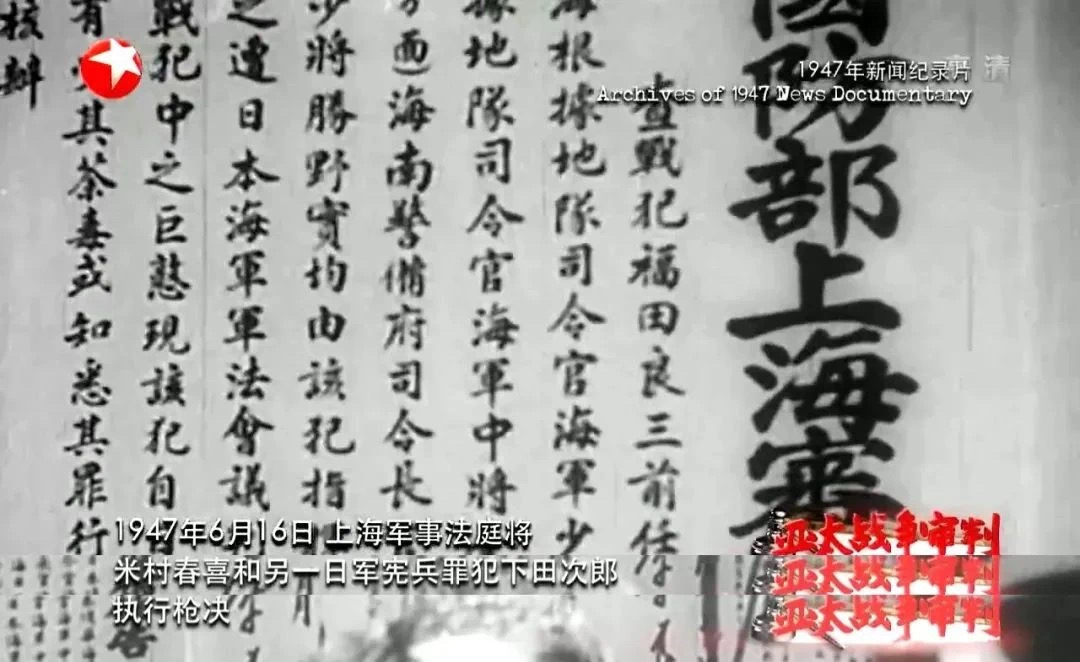 1947年新闻纪录片
Archives of 1947 News Documentary
國防部上海審
查戰犯福田良三前任
海根據地隊司令官海軍少
據地隊司令官海軍中將
方面海南警備府司令長
少將勝野實均由該犯指
之遣日本海軍軍法會議
戰犯中之巨憝現該犯自
有其荼毒或知悉其罪行
核辦
1947年6月16日 上海军事法庭将
米村春喜和另一日军宪兵罪犯下田次郎
执行枪决
亚太战争审判
亚太战争审判
亚太战争审判